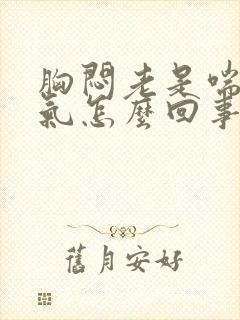 胸悶老是喘
氣怎麼回事
舊月安好